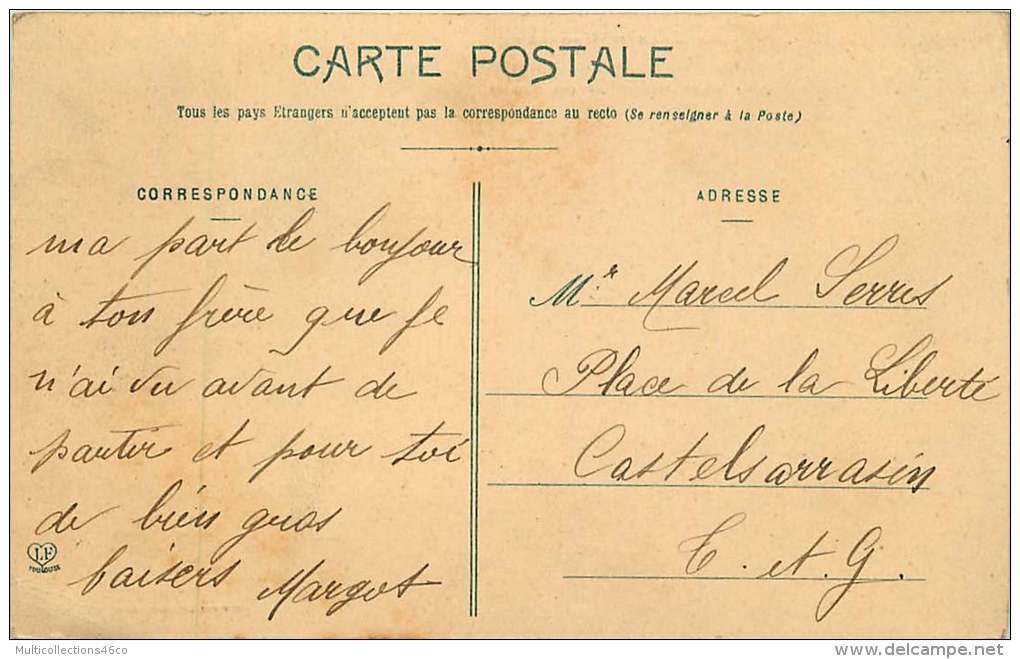 CARTE POSTALE
Tous les pays Etrangers n'acceptent pas la correspondance au recto (Se renseigner à la Poste)
CORRESPONDANCE
ma part le bonjour
à ton frère que je
n'ai vu avant de
partir et pour toi
de bien gros
baisers Margot
LF
TOULOUSE
ADRESSE
Mr. Marcel Serres
Place de la Liberté
Castelsarrasin
T. et. G.
Multicollections46co
delcampe.net